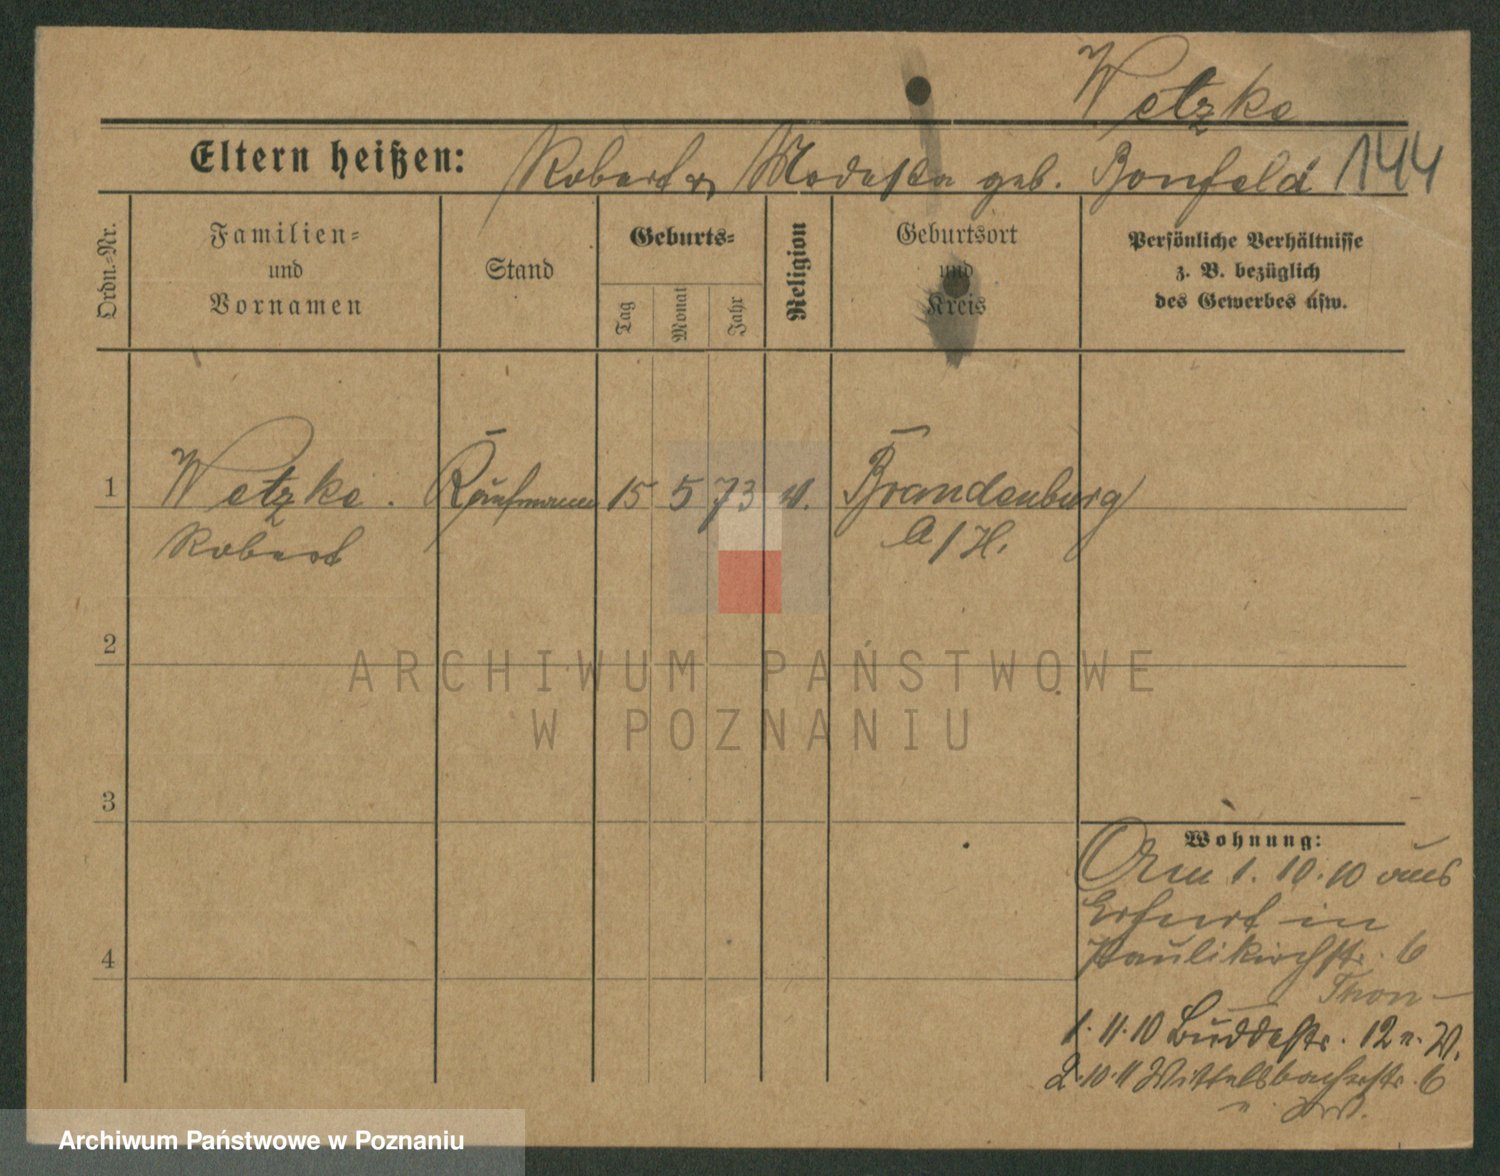 Wetzke
Eltern heißen: Robert u. Modesta geb. Bonfeld 144
Ordn.-Nr.
Familien-
und
Vornamen
Stand
Geburts-
Tag
Monat
Jahr
Religion
Geburtsort
und
Kreis
Persönliche Verhältnisse
z. B. bezüglich
des Gewerbes usw.
1 Wetzke. Kaufmann 15 5 73 Brandenburg
Robert a/H.
2
ARCHIWUM PAŃSTWOWE
W POZNANIU
3
Wohnung:
1.10.10 aus
Erfurt in
Paulikirchstr. 6
Thon-
1.11.10 Buddestr. 12 n. W.
2.10.11 Wittelsbacherstr. 6
4
Archiwum Państwowe w Poznaniu